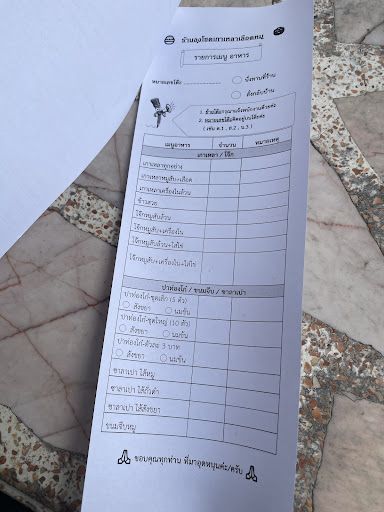 ร้านลุงโชคเกาเหลาเลือดหมู
รายการเมนู อาหาร
หมายเลขโต๊ะ
นั่งทานที่ร้าน
สั่งกลับบ้าน
1. ได้โต๊ะกรุณาแจ้งพนักงานด้วยค่ะ
2. หมายเลขโต๊ะติดอยู่บนโต๊ะค่ะ
เมนูอาหาร จำนวน หมายเหตุ
เกาเหลา / โจ๊ก
เกาเหลาทุกอย่าง
เกาเหลาหมูสับ+เลือด
เกาเหลาเครื่องในล้วน
ข้าวสวย
โจ๊กหมูสับล้วน
โจ๊กหมูสับ+เครื่องใน
โจ๊กหมูสับล้วน+ใส่ไข่
โจ๊กหมูสับ+เครื่องใน+ใส่ไข่
ปาท่องโก๋ / ขนมจีบ / ซาลาเปา
ปาท่องโก๋-ชุดเล็ก (5 ตัว)
สังขยา นมข้น
ปาท่องโก๋-ชุดใหญ่ (10 ตัว)
สังขยา นมข้น
ปาท่องโก๋-ตัวละ 3 บาท
สังขยา นมข้น
ซาลาเปา ไส้หมู
ซาลาเปา ไส้ถั่วดำ
ซาลาเปา ไส้สังขยา
ขนมจีบหมู
ขอบคุณทุกท่าน ที่มาอุดหนุนค่ะ/ครับ